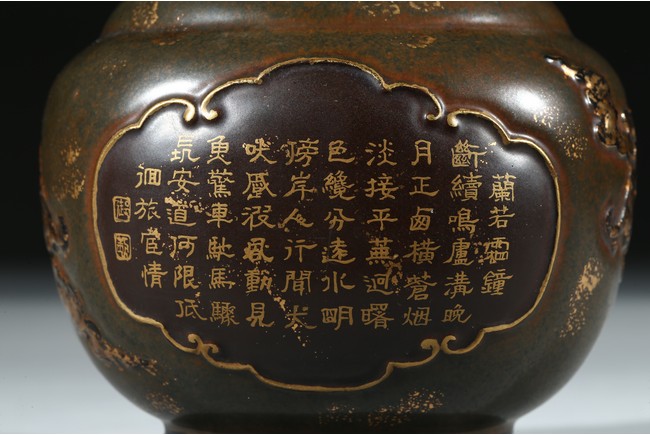 蘭若霜鐘
斷續鳴盧溝晚
月正西橫蒼烟
淡接平蕪迥曙
色纔分遠水明
傍岸人行聞犬
吠風動見
魚驚車馳馬驟
長安道何限低
佪旅宦情